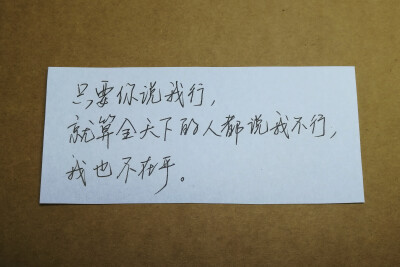 只要你说我行，
就算全天下的人都说我不行，
我也不在乎。